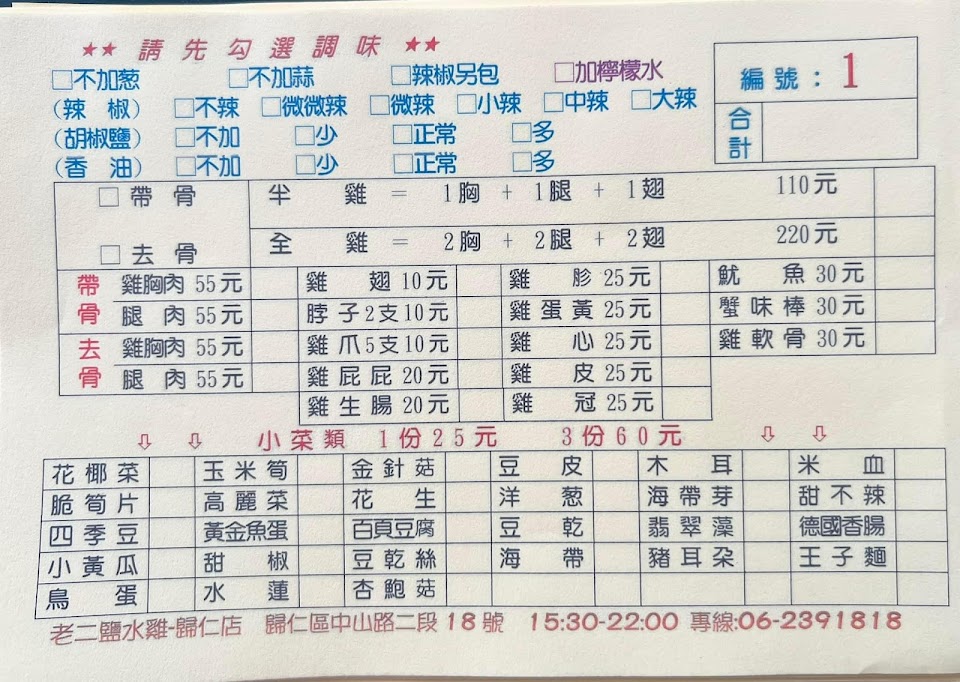 ★★ 請先勾選調味 ★★
□不加葱 □不加蒜 □辣椒另包 □加檸檬水
編號：1
(辣椒) □不辣 □微微辣 □微辣 □小辣 □中辣 □大辣
(胡椒鹽) □不加 □少 □正常 □多
合計
(香油) □不加 □少 □正常 □多
□帶骨 半雞 = 1胸 + 1腿 + 1翅 110元
□去骨 全雞 = 2胸 + 2腿 + 2翅 220元
帶骨 雞胸肉 55元 雞翅 10元 雞胗 25元 魷魚 30元
腿肉 55元 脖子2支10元 雞蛋黃 25元 蟹味棒 30元
去骨 雞胸肉 55元 雞爪5支10元 雞心 25元 雞軟骨 30元
腿肉 55元 雞屁屁 20元 雞皮 25元
雞生腸 20元 雞冠 25元
⇩ ⇩ 小菜類 1份25元 3份60元 ⇩ ⇩
花椰菜 玉米筍 金針菇 豆皮 木耳 米血
脆筍片 高麗菜 花生 洋葱 海帶芽 甜不辣
四季豆 黃金魚蛋 百頁豆腐 豆乾 翡翠藻 德國香腸
小黃瓜 甜椒 豆乾絲 海帶 豬耳朵 王子麵
鳥蛋 水蓮 杏鮑菇
老二鹽水雞-歸仁店 歸仁區中山路二段18號 15:30-22:00 專線:06-2391818